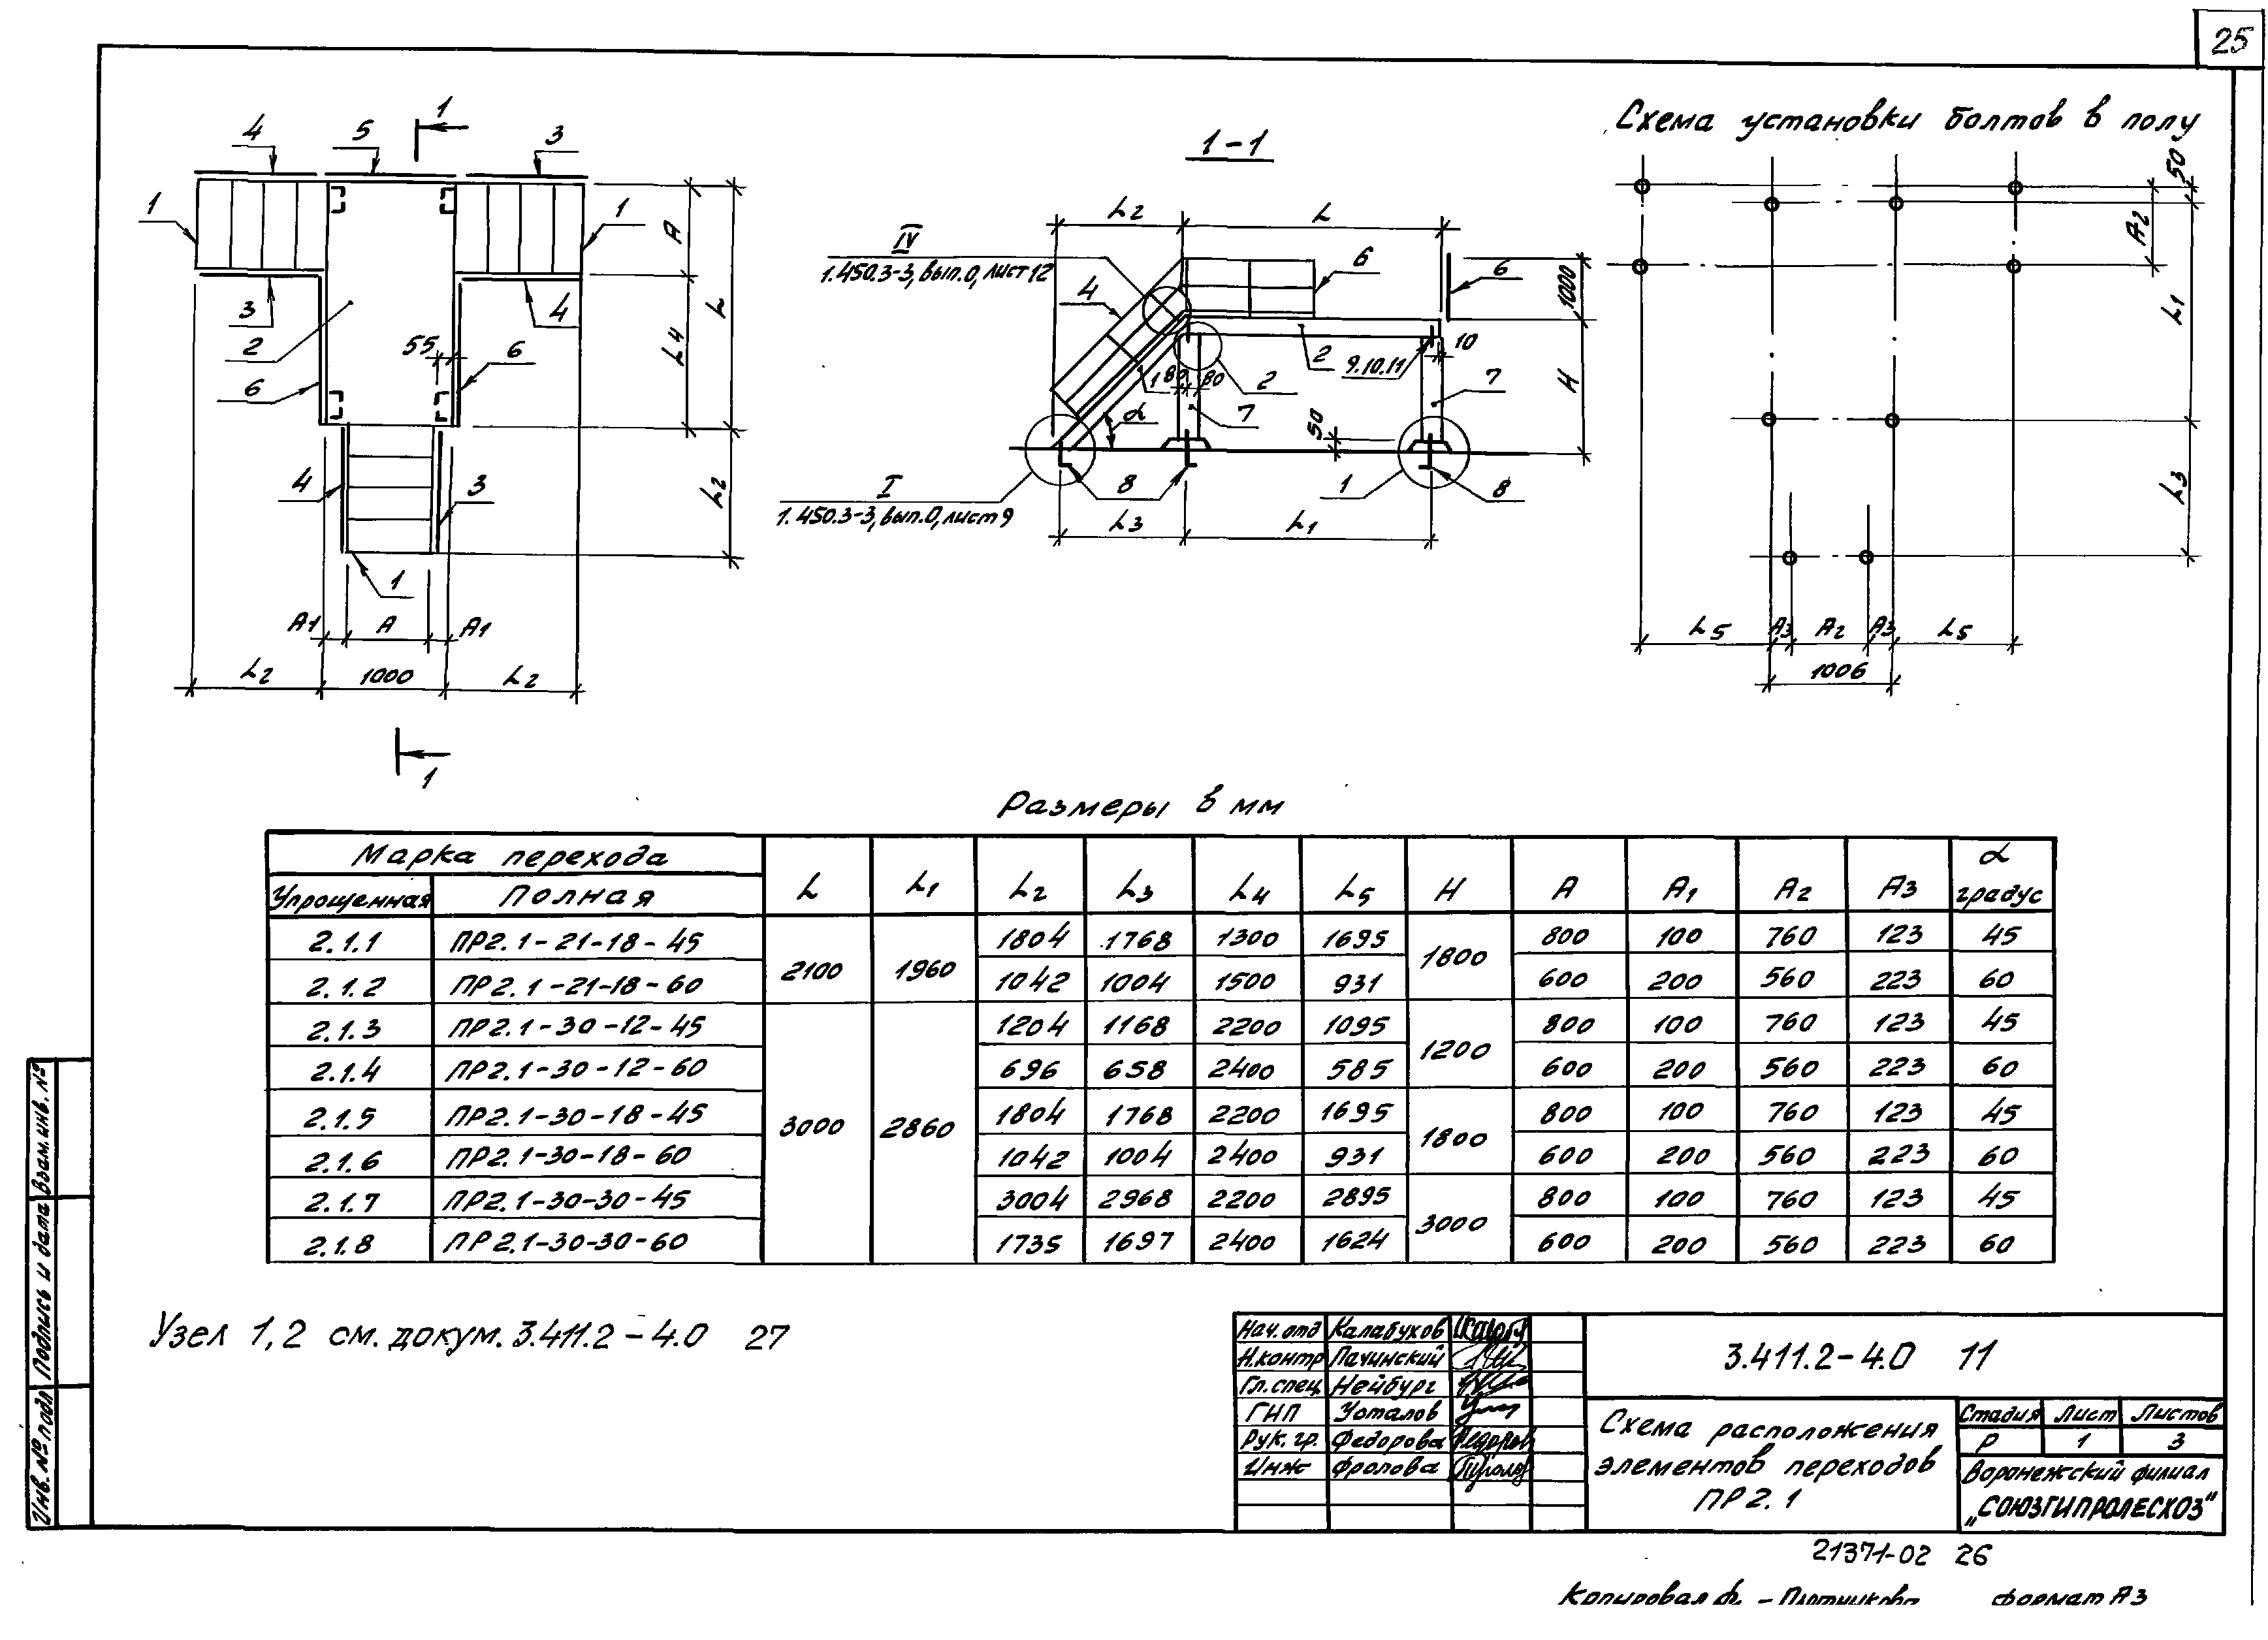 25
1
4 5 3
1 1
3 2 6 55 6 4
4 3
1
A L L4 L2
A1 A A1
L2 1000 L2
1
1-1
L2 L
IV
1.450.3-3, вып.0, лист 12
4 6 6
1000
H
1 80 80 2 2 9.10.11 10
7 7
α 50
I
1.450.3-3, вып.0, лист 9
8 1 8
L3 L1
Схема установки болтов в полу
50
A2
L1
L3
L5 A3 A2 A3 L5
1006
Размеры в мм
Марка перехода L L1 L2 L3 L4 L5 H A A1 A2 A3 α градус
Упрощенная Полная
2.1.1 ПР2.1-21-18-45 2100 1960 1804 1768 1300 1695 1800 800 100 760 123 45
2.1.2 ПР2.1-21-18-60 1042 1004 1500 931 600 200 560 223 60
2.1.3 ПР2.1-30-12-45 3000 2860 1204 1168 2200 1095 1200 800 100 760 123 45
2.1.4 ПР2.1-30-12-60 696 658 2400 585 600 200 560 223 60
2.1.5 ПР2.1-30-18-45 1804 1768 2200 1695 1800 800 100 760 123 45
2.1.6 ПР2.1-30-18-60 1042 1004 2400 931 600 200 560 223 60
2.1.7 ПР2.1-30-30-45 3004 2968 2200 2895 3000 800 100 760 123 45
2.1.8 ПР2.1-30-30-60 1735 1697 2400 1624 600 200 560 223 60
Узел 1,2 см. докум. 3.411.2-4.0 27
Взам. инв. №
Подпись и дата
Инв. № подл
Нач. отд Калабухов
Н.контр Пачинский
Гл. спец Нейбург
ГИП Усталов
Рук. гр. Федорова
Инж Фролова
3.411.2-4.0 11
Схема расположения
элементов переходов
ПР2.1
Стадия Лист Листов
Р 1 3
Воронежский филиал
„СОЮЗГИПРОЛЕСХОЗ"
21371-02 26
Копировал Формат А3